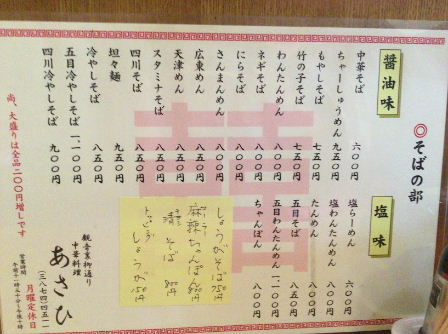 ◎そばの部
醤油味
中華そば 六〇〇円
ちゃーしゅうめん 九五〇円
もやしそば 七五〇円
竹の子そば 七五〇円
わんたんめん 八〇〇円
ネギそば 八〇〇円
にらそば 八〇〇円
さんまんめん 八〇〇円
広東めん 八五〇円
天津めん 八五〇円
スタミナそば 八五〇円
四川そば 八五〇円
坦々麺 九五〇円
冷やしそば 八五〇円
五目冷やしそば 一一〇〇円
四川冷やしそば 九〇〇円
尚、大盛りは全品二〇〇円増しです
塩味
塩らーめん 六〇〇円
塩わんたんめん 八〇〇円
たんめん
五目そば
五目わんたんめん
ちゃんぽん 八〇〇円
しょうがそば 750円
麻辣ちゃんぽん
そば
しょうが
観音裏柳通り
中華料理
あさひ
(三八七四)四五一一
月曜定休日
営業時間